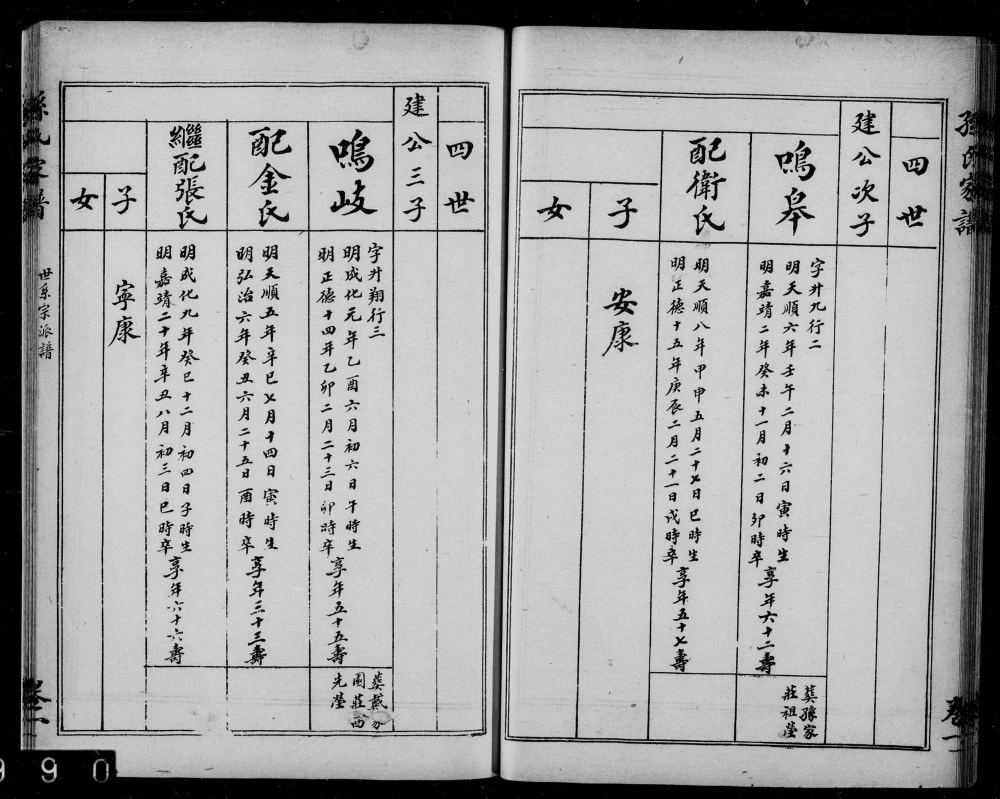 孫氏家譜
卷一
四世
建公次子
鳴皋
字升九行二
明天順六年壬午二月十六日寅時生
明嘉靖二年癸未十一月初二日卯時卒
享年六十二壽
葬孫家
莊祖塋
配衛氏
明天順八年甲申五月二十七日巳時生
明正德十五年庚辰二月二十一日戌時卒
享年五十七壽
子
安康
女
四世
建公三子
鳴岐
字升翔行三
明成化元年乙酉六月初六日午時生
明正德十四年乙卯二月二十三日卯時卒
享年五十五壽
葬戴
園莊西
先塋
配金氏
明天順五年辛巳七月十四日寅時生
明弘治六年癸丑六月二十五日酉時卒
享年三十三壽
繼配張氏
明成化九年癸巳十二月初四日子時生
明嘉靖二十年辛丑八月初三日巳時卒
享年六十六壽
子
寧康
女
孫氏家譜
世系宗派譜
卷一
990